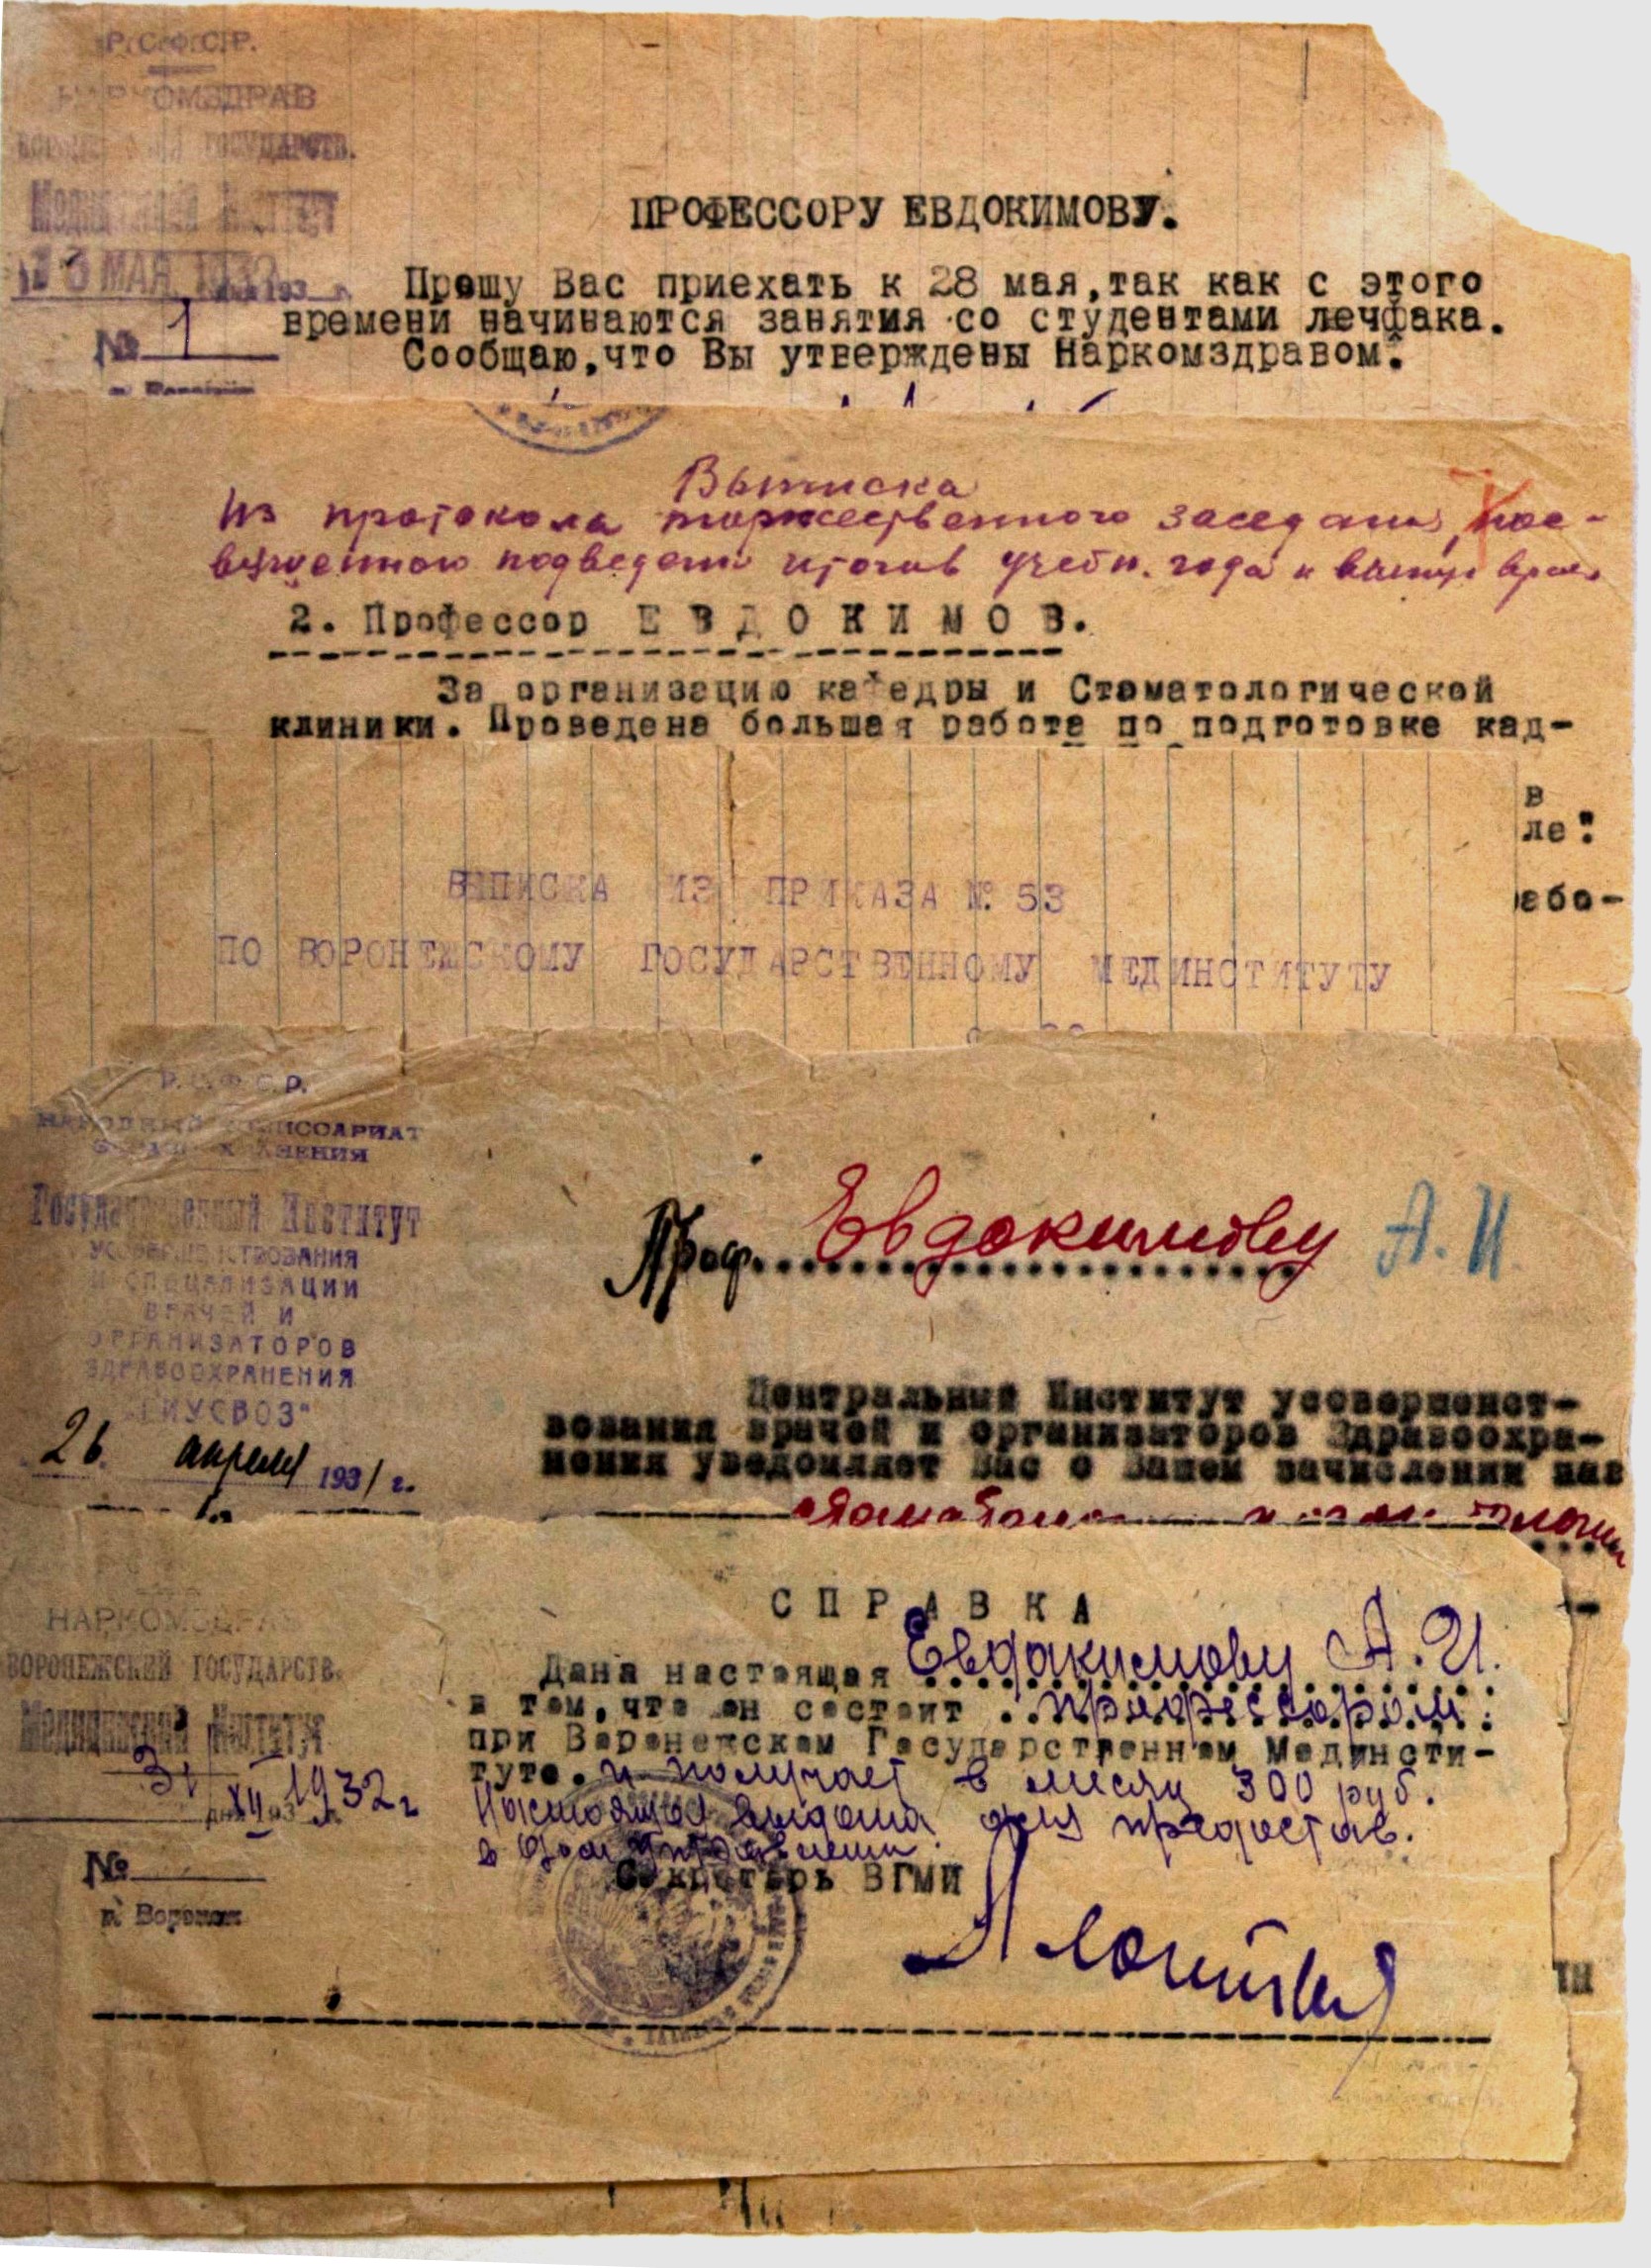 Р.С.Ф.С.Р.
НАРКОМЗДРАВ
ГОСУДАРСТВ.
Медицинский Институт
13 МАЯ 1932
№ 1
ПРОФЕССОРУ ЕВДОКИМОВУ.
Прошу Вас приехать к 28 мая,так как с этого
времени начинаются занятия со студентами лечфака.
Сообщаю,что Вы утверждены Наркомздравом.
Выписка
Из протокола торжественного заседания, пос-
вященного подведен итогов учебн. года и
2. Профессор ЕВДОКИМОВ.
За организацию кафедры и Стоматологической
клиники. Проведена большая работа по подготовке кад-
в
ле:
або-
ВЫПИСКА ИЗ ПРИКАЗА №. 53
ПО ВОРОНЕЖСКОМУ ГОСУДАРСТВЕННОМУ МЕДИНСТИТУТУ
Р.С.Ф.С.Р.
НАРОДНЫЙ КОМИССАРИАТ
ЗДРАВООХРАНЕНИЯ
Государственный Институт
УСОВЕРШЕНСТВОВАНИЯ
И СПЕЦИАЛИЗАЦИИ
ВРАЧЕЙ И
ОРГАНИЗАТОРОВ
ЗДРАВООХРАНЕНИЯ
"ГИУСВОЗ"
26 апреля 1931 г.
Проф. Евдокимову А. И
Центральный Институт усовершенст-
вования врачей и организаторов Здравоохра-
нения уведомляет Вас о Вашем зачислении
НАРКОМЗДРАВ
ВОРОНЕЖСКИЙ ГОСУДАРСТВ.
Медицинский Институт
31 XII 1932 г
№
г. Воронеж
СПРАВКА
Дана настоящая Евдакимову А. И.
в том,что он состоит профессором
при Воронежском Государственном Мединсти-
туте. и получает в месяц 300 руб.
Настоящая выдана для предостав.
в
Секретарь ВГМИ